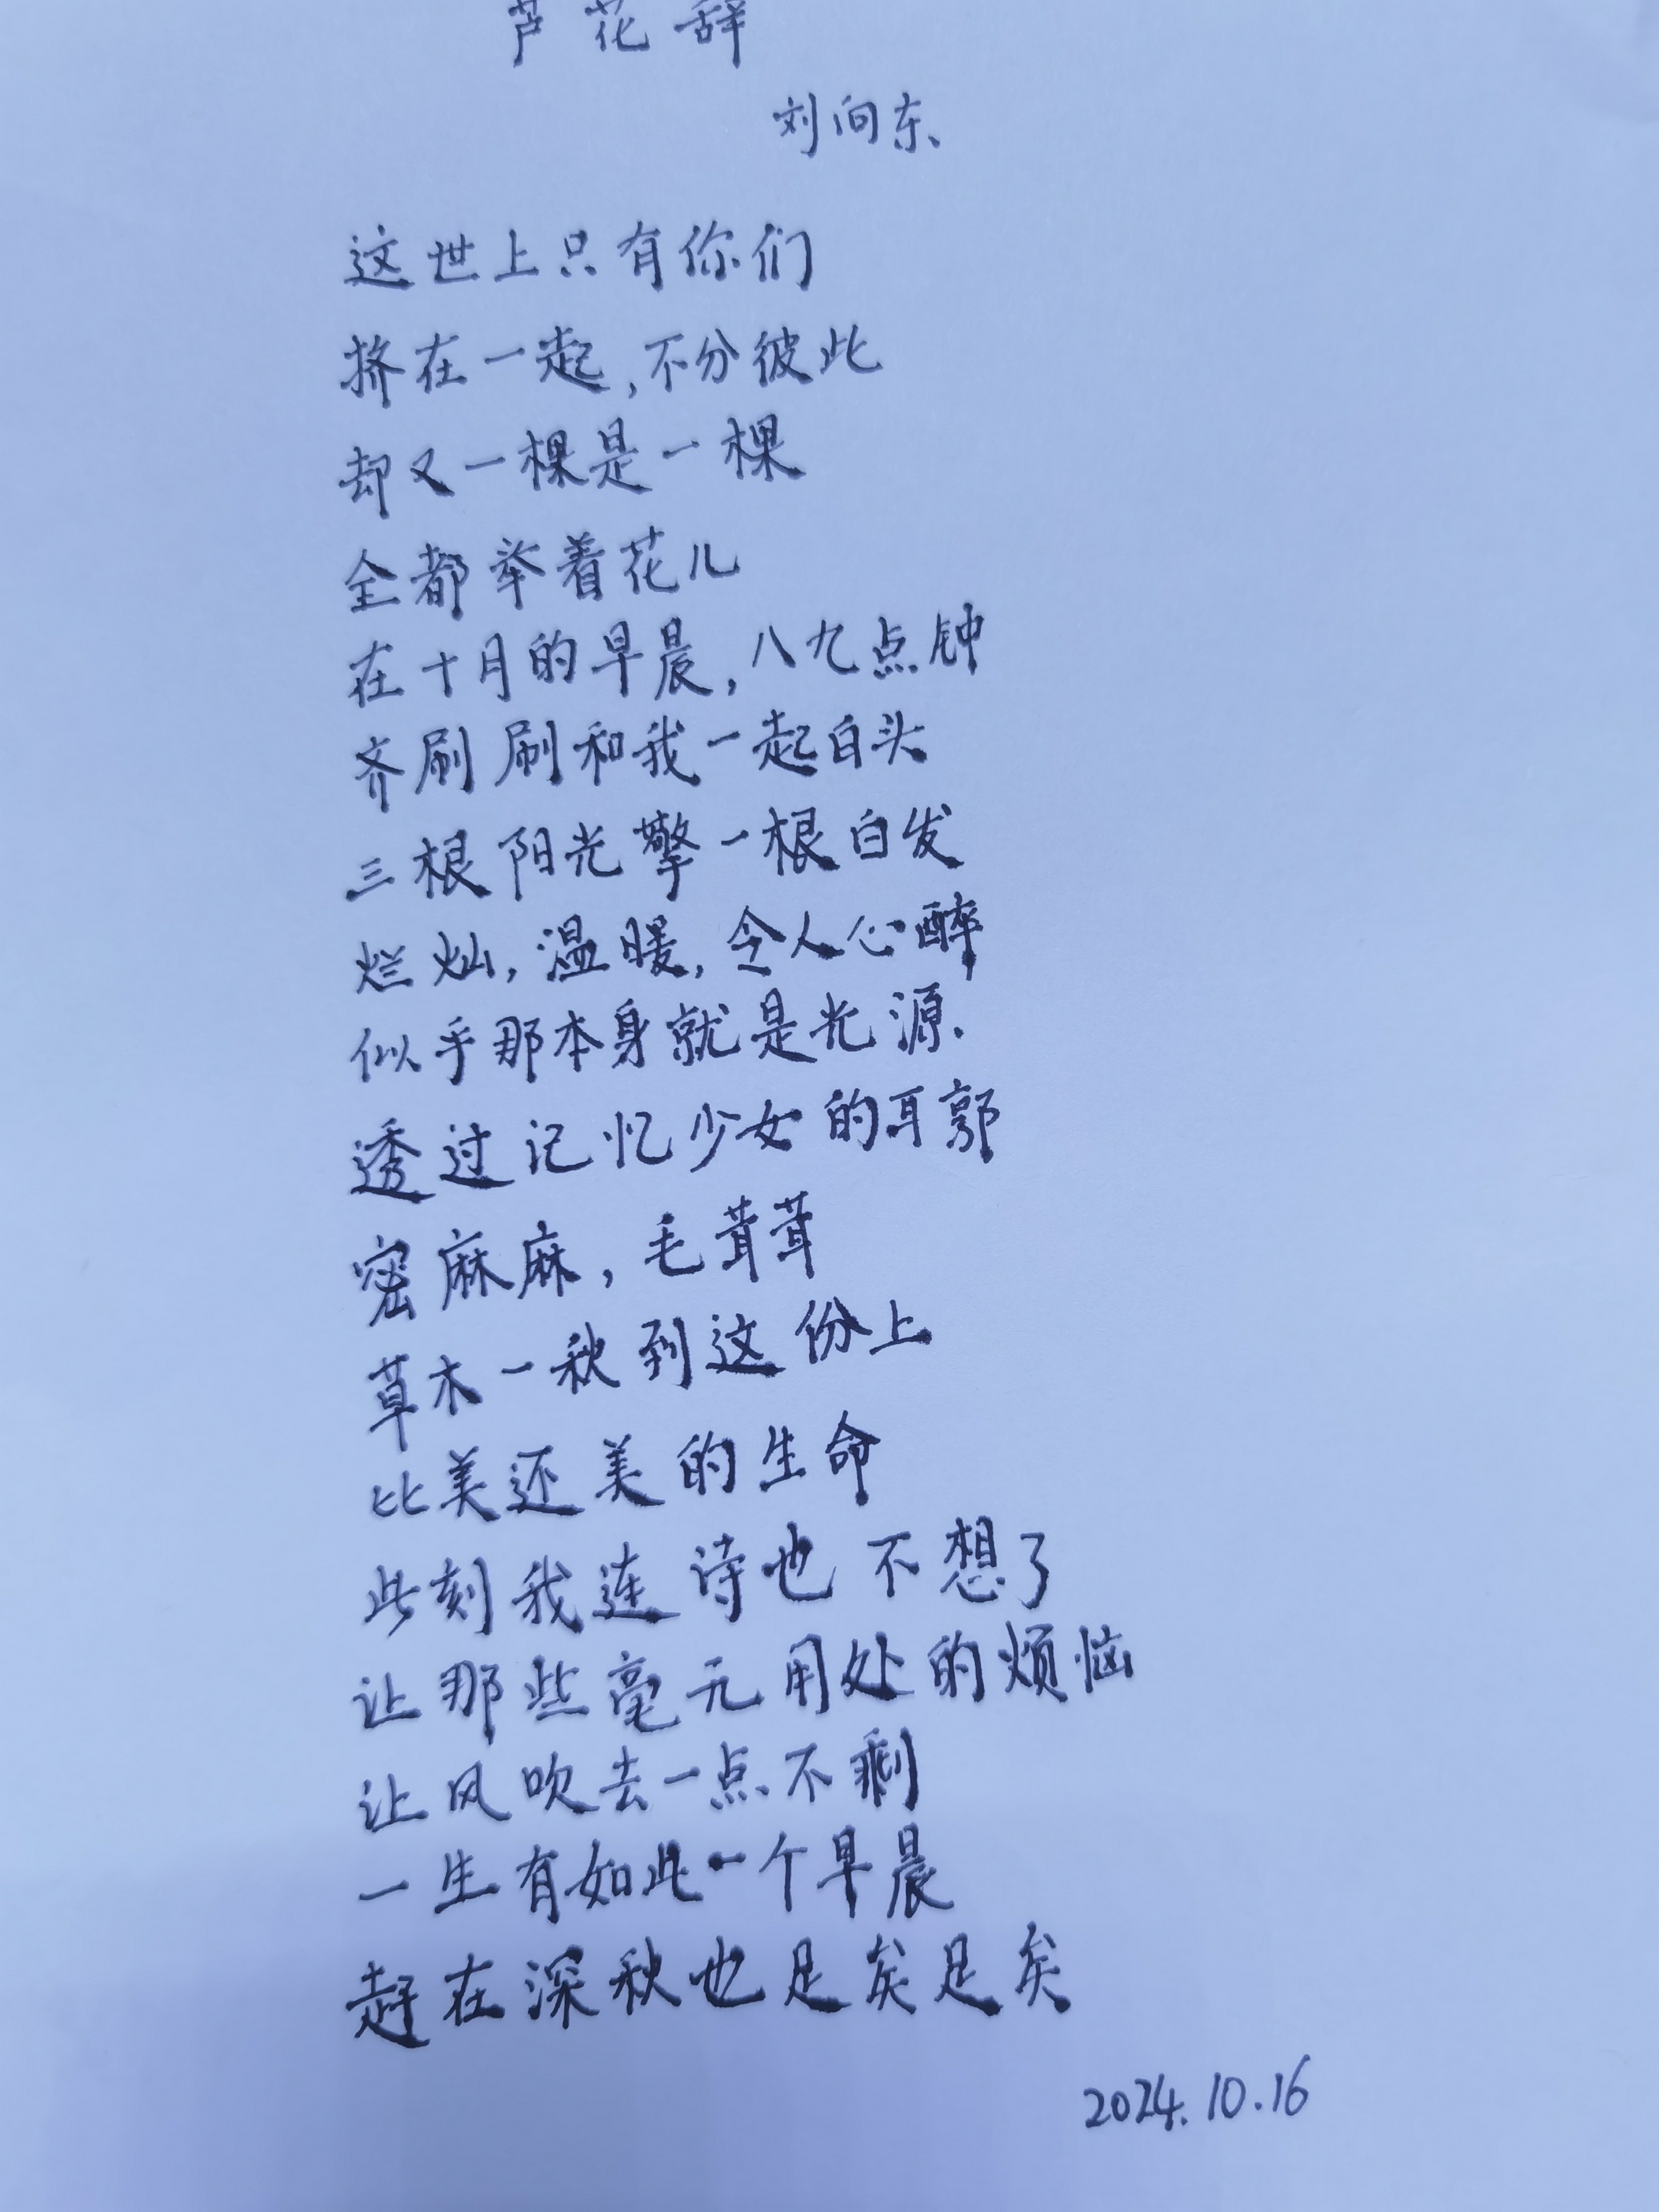 芦花辞
刘向东
这世上只有你们
挤在一起,不分彼此
却又一棵是一棵
全都举着花儿
在十月的早晨,八九点钟
齐刷刷和我一起白头
三根阳光擎一根白发
烂灿,温暖,令人心醉
似乎那本身就是光源.
透过记忆少女的耳郭
密麻麻,毛茸茸
草木一秋到这份上
比美还美的生命
此刻我连诗也不想了
让那些毫无用处的烦恼
让风吹去一点不剩
一生有如此一个早晨
赶在深秋也足矣足矣
2024.10.16